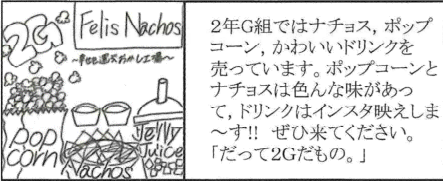 2G
Felis Nachos
pop
corn
Nachos
Jelly
Juice
2年G組ではナチョス,ポップ
コーン,かわいいドリンクを
売っています。ポップコーンと
ナチョスは色んな味があっ
て,ドリンクはインスタ映えしま
〜す!! ぜひ来てください。
「だって2Gだもの。」